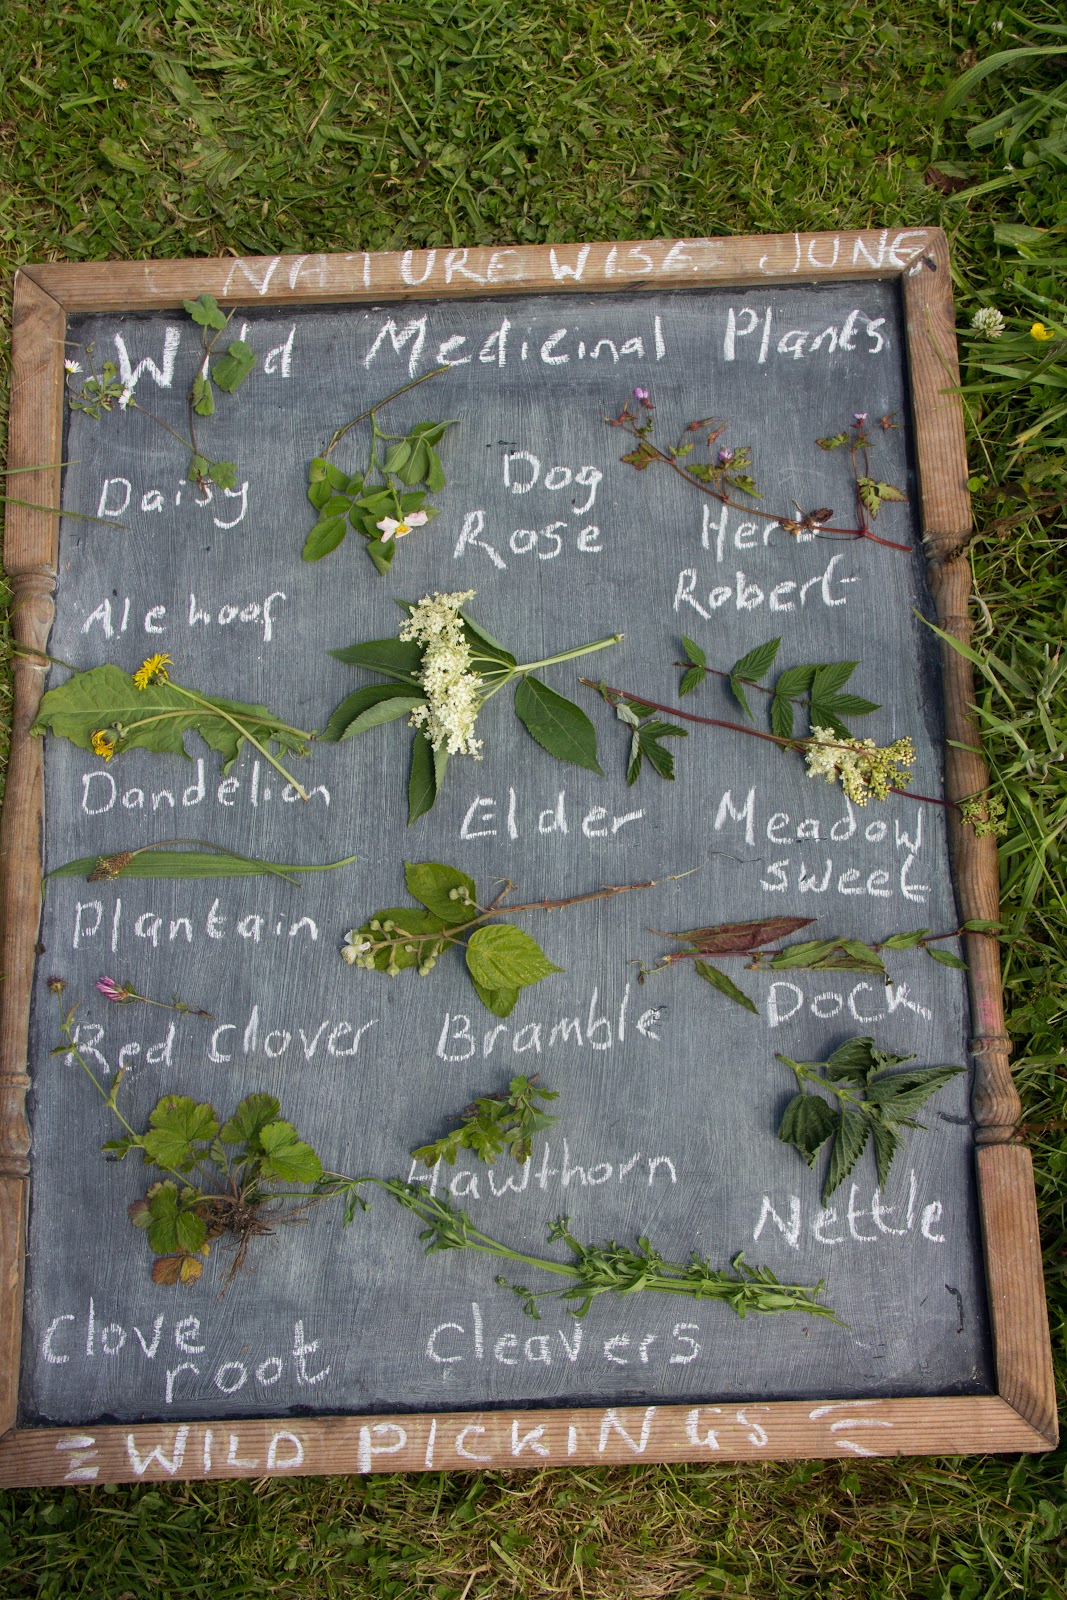 NATUREWISE JUNE
Wild Medicinal Plants
Daisy
Dog
Rose
Herb
Robert
Alehoof
Dandelion
Elder
Meadow
sweet
Plantain
Red Clover
Bramble
DOCK
Hawthorn
Nettle
Clove
root
Cleavers
WILD PICKINGS